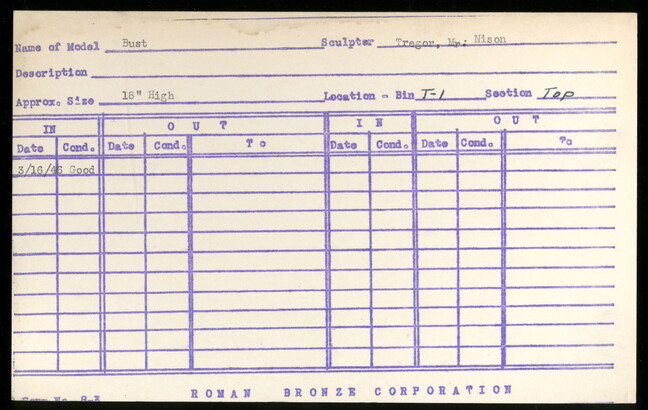 Name of Model Bust Sculptor Tregor, Mr: Nison
Description
Approx. Size 18" High Location - Bin T-1 Section Top
IN OUT IN OUT
Date Cond. Date Cond. To Date Cond. Date Cond. To
3/16/46 Good
Form No. 8-3
ROMAN BRONZE CORPORATION